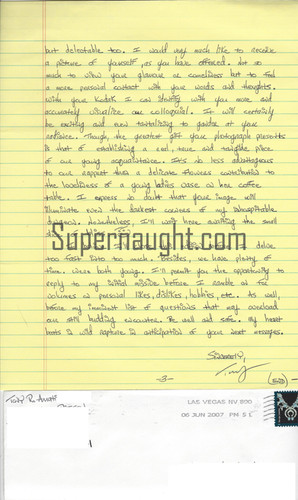 but delectable too. I would very much like to receive
a picture of yourself, as you have offered. Not so
much to view your glamour or comeliness but to feel
a more personal contact with your words and thoughts.
With your Kodak I can startlng with you more and
accurately visualize our colloquial. It will certainly
be exciting and even tantalizing to ponder at your
radiance. Though, the greatest gift your photograph presents
is that of establishing a real, true and tangible piece
of our young acquaintance. It's no less advantageous
to our rapport than a delicate flowers contribution to
the loneliness of a young ladies vase on her coffee
table. I express no doubt that your image will
illuminate even the darkest corners of my inhospitable
dungeon. Nevertheless, I'll be awaiting the
Supernaught.com
delve
too fast into too much. Besides, we have plenty of
time. We're both young. I'll permit you the opportunity to
reply to my initial missive before I ramble on for
volumes on personal likes, dislikes, hobbies, etc. As well,
before my imminent list of questions that may overload
our still budding encounter. Be well and safe. My heart
beats in wild rapture in anticipation of your next
Sincerely,
Tony
-3-
(END)
Tony R.
LAS VEGAS NV 890
06 JUN 2007 PM 5 L